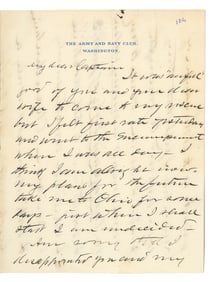 186
THE ARMY AND NAVY CLUB,
WASHINGTON.
My dear Captain:
It was awful
good of you and your dear
wife to come to my rescue
but I felt first rate yesterday
and went to the Encampment
where I was all day - I
think I am alright now.
my plans for the future
take me to Ohio for some
days - just when I shall
start I am undecided -
Am sorry that I
disappointed you and my